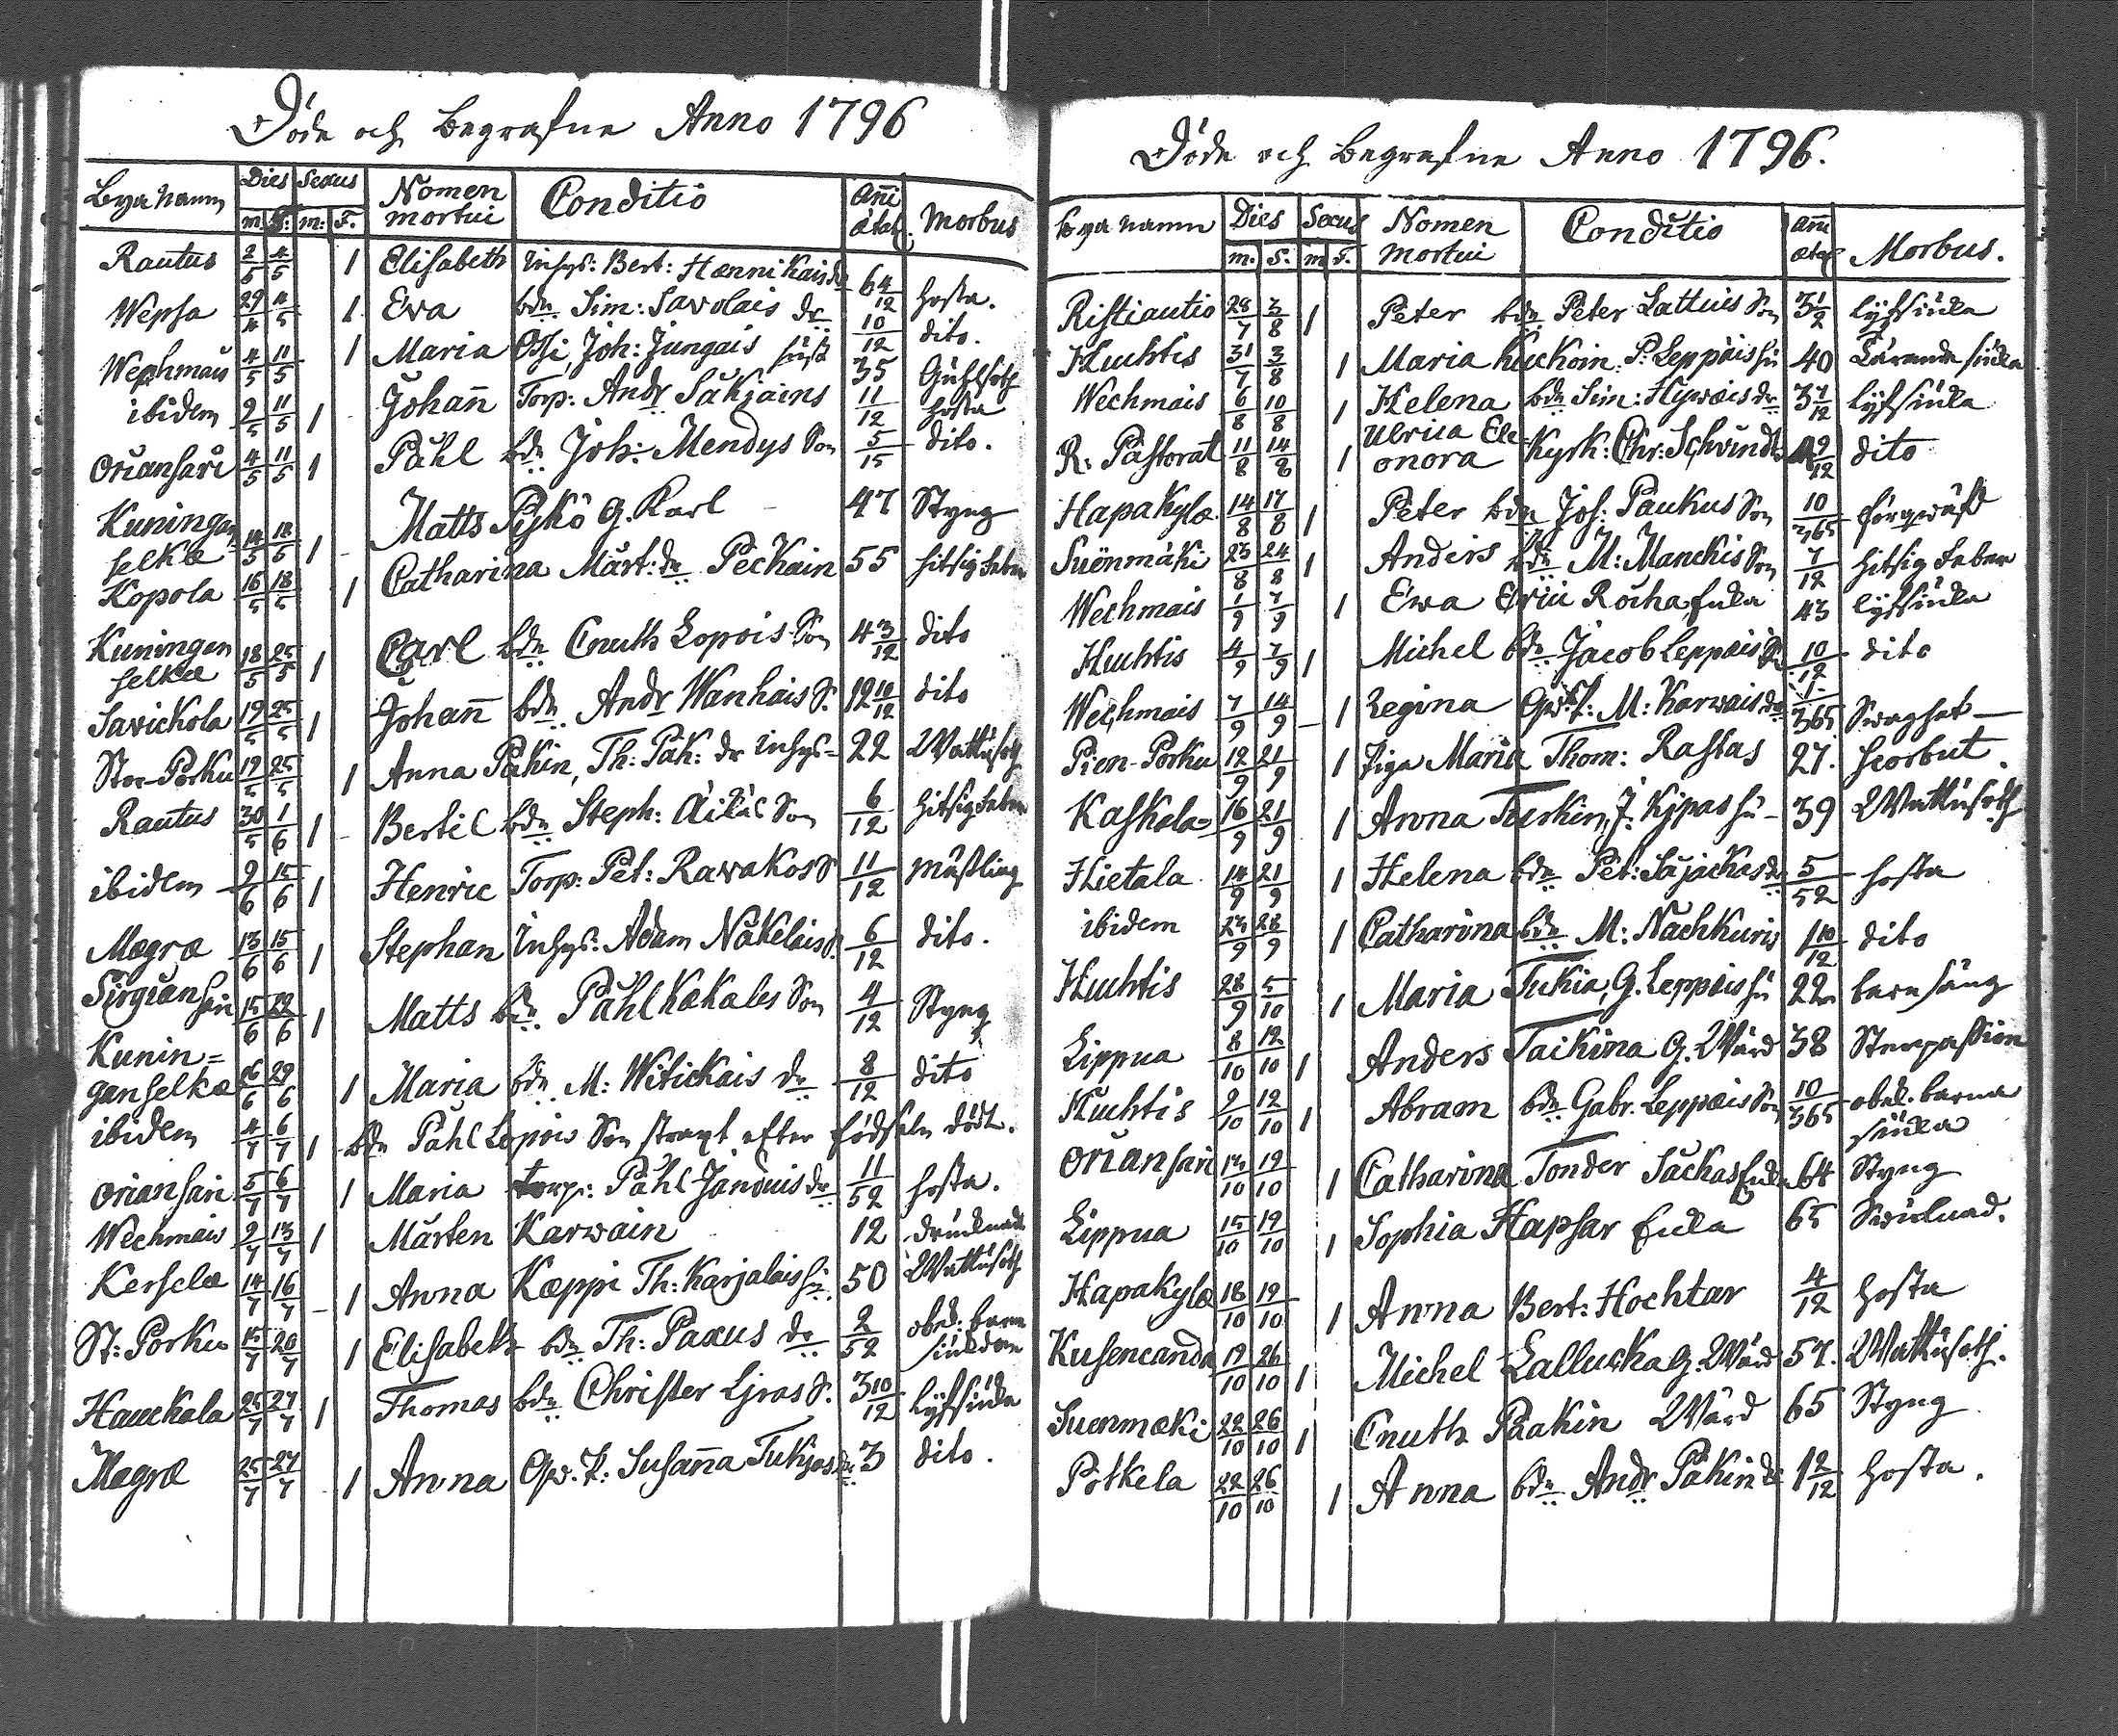 Döde och Begrafne Anno 1796
Bya Namn Dies Sexus Nomen mortui Conditio añi ætat: Morbus
m. S: m: F.
Rautus 2/5 4/5 1 Elisabeth Inhys: Bert: Hænnikais dr 6 4/12 hosta.
Wepsa 29/4 4/5 1 Ewa bdn Sim: Savolais dr 10/12 dito.
Wechmais 4/5 11/5 1 Maria Joh: Jungais 35 Guhlsoth
ibidem 9/5 11/5 1 Johañ Torp: Andr Säkjains 11/12 hosta
Oriansari 4/5 11/5 1 Påhl bdn Joh: Mendys Son 5/15 dito.
Kuningan
selkæ 14/5 18/5 1 Matts Pykö G. Karl 47 Styng
Kopola 16/5 18/5 1 Catharina Mårt: dr Peckain 55 hitsig feber
Kuningan
selkæ 18/5 25/5 1 Carl bdn Cnuth Lopois Son 4 3/12 dito
Savickola 19/5 25/5 1 Johañ bdn Andr Wanhais S. 12 10/12 dito
Stor-Porku 19/5 25/5 1 Anna Päkin, Th: Päk: dr inhys- 22 Wattusoth
Rautus 30/5 1/6 1 Bertil bdn Steph: Äikäs Son 6/12 hitsig feber
ibidem 9/6 15/6 1 Henric Torp: Pet: Ravakos S 11/12 Mäßling
Mægræ 13/6 15/6 1 Stephan Inhys: Adam Näkelais S. 6/12 dito.
Sirgiansari 15/6 22/6 1 Matts bdn Påhl Kækæles Son 4/12 Styng
Kunin=
ganselkæ 26/6 29/6 1 Maria bdn M: Witickais dr 8/12 dito
ibidem 4/7 6/7 1 bdn Påhl Lopois Son straxt efter födseln död.
Oriansari 5/7 6/7 1 Maria torp: Påhl Jänöuis dr 11/52 hosta.
Wechmais 9/7 13/7 1 Mårten Karwain 12 drunknade
Kerselæ 14/7 16/7 1 Anna Kæppi Th: Karjalais hu: 50 Wattusoth
St: Porku 15/7 20/7 1 Elisabeth bdn Th: Paxus dr 2/52 obek: barn
siukdom
Hauckala 25/7 27/7 1 Thomas bdn Christer Ljras S. 3 10/12 lyfsiuka
Mægræ 25/7 27/7 1 Anna Qw. P: Susaña Tukjas dr 3 dito.
Döde och Begrafne Anno 1796.
Bya namn Dies Sexus Nomen mortui Conditio añi ætat Morbus.
m. S. m F.
Ristiautio 28/7 3/8 1 Peter bdn Peter Lattuis Son 3 1/2 lyfsiuka
Huhtis 31/7 3/8 1 Maria Kuckoin: P. Leppäis hu 40 Tärande siuka
Wechmais 6/8 10/8 1 Helena bdn Sim: Hywæis dr 3 7/12 lyfsiuka
R: Pastorat 11/8 14/8 1 Ulrica Ele-
onora Kyrk: Chr: Schvindts 9/12 dito
Hapakylæ 14/8 17/8 1 Peter bdn Joh: Paukus Son 10/365 förqwäfd
Suenmäki 23/8 24/8 1 Anders bdn M: Manckis Son 7/12 hitsig feber
Wechmais 1/9 7/9 1 Ewa Eriii Röcha Enka 43 lyfsiuka
Huhtis 4/9 7/9 1 Michel bdn Jacob Leppäis Son 10/12 dito
Wechmais 7/9 14/9 1 Regina Qw. P: M: Karwais dr 1/365 Swaghet
Pien-Porku 12/9 21/9 1 Piga Maria Thom: Rastas 27. scorbut.
Kaskela= 16/9 21/9 1 Anna Turkin, J. Kjpas hu- 39 Wattusoth
Hietala 14/9 21/9 1 Helena bdn Pet: Säjäckas dr 5/52 hosta
ibidem 24/9 28/9 1 Catharina bdn M: Nachkuris 1 10/12 dito
Huhtis 28/9 5/10 1 Maria Tukia, G. Leppäis hu 22 barnsäng
Lippua 8/10 12/10 1 Anders Taikina G. Wärd 38 Stenpassion
Huhtis 9/10 12/10 1 Abram bdn Gabr. Leppæis Son 10/365 obek: barna
siuka
Oriansari 14/10 19/10 1 Catharina Tonder Säckas Enka 64 Styng
Lippua 15/10 19/10 1 Sophia Hapsar Enka 65 Swulnad.
Hapakylæ 18/10 19/10 1 Anna Bert: Hochtar 4/12 hosta
Kusencanda 19/10 26/10 1 Michel Lallucka G. Wärd 57. Wattusoth.
Suenmæki 22/10 26/10 1 Cnuth Paakin Wärd 65 Styng
Potkela 22/10 26/10 1 Anna bdn Andr Päkin dr 1 2/12 hosta.